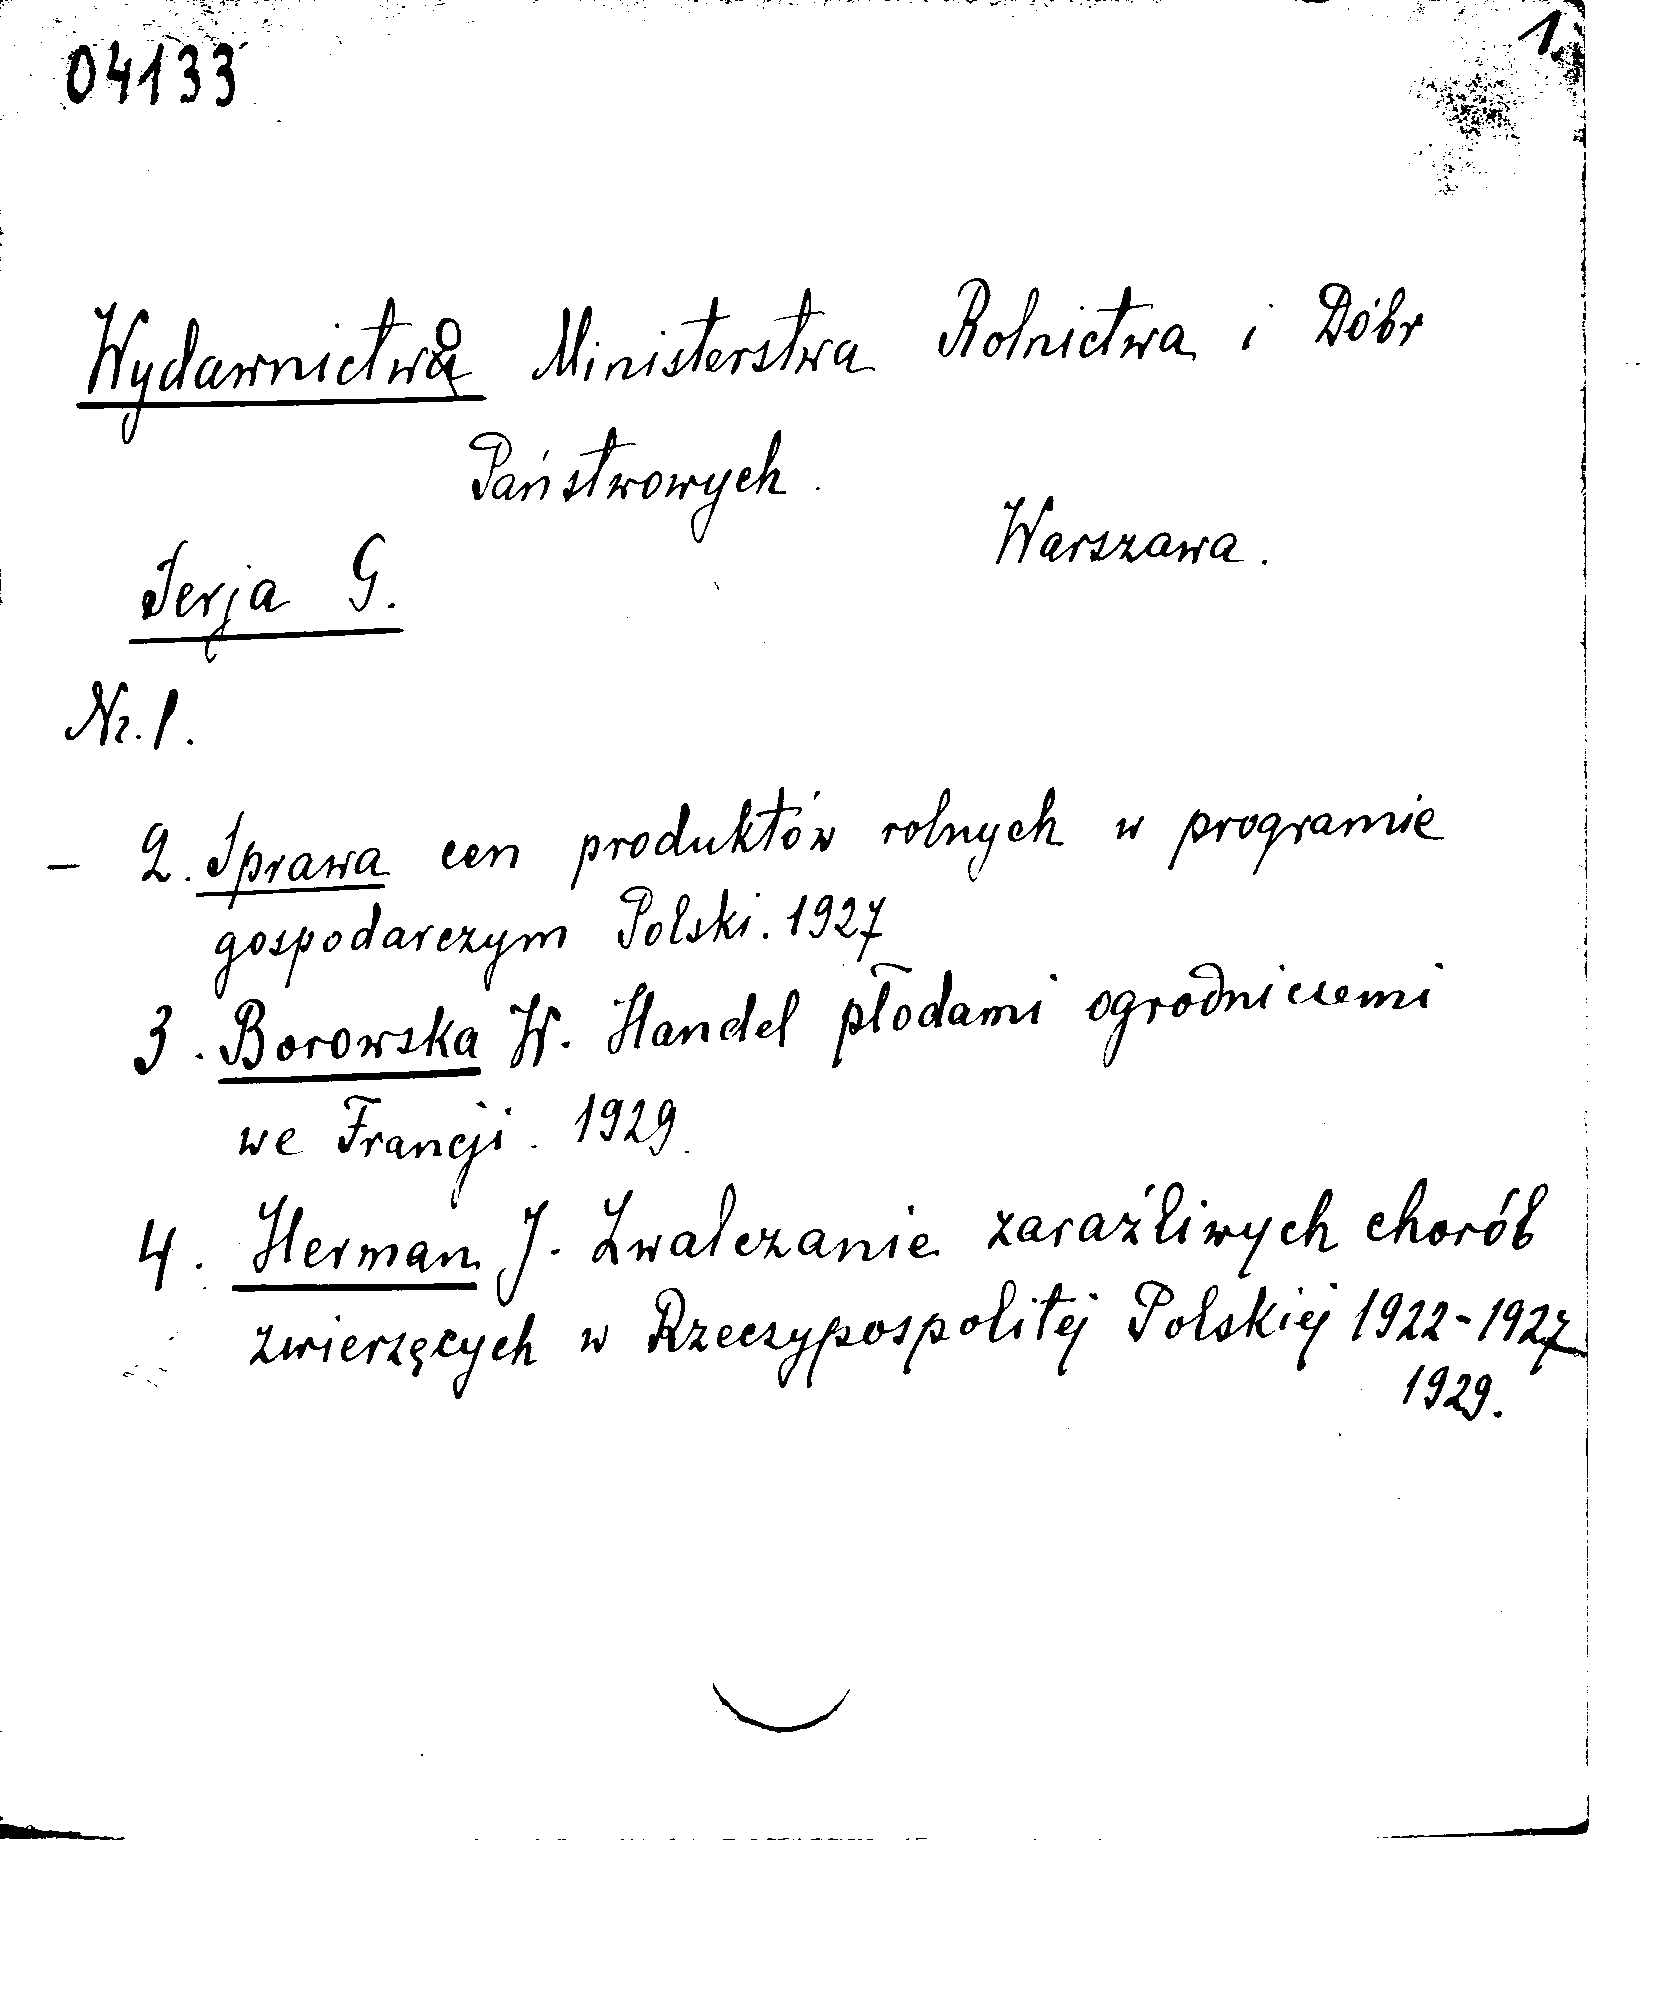 04133
1.
Wydawnictwo Ministerstwa Rolnictwa i Dóbr
Państwowych.
Warszawa.
Serja G.
Nr. 1.
- 2. Sprawa cen produktów rolnych w programie
gospodarczym Polski. 1927
3. Borowska W. Handel płodami ogrodniczemi
we Francji. 1929.
4. Herman J. Zwalczanie zaraźliwych chorób
zwierzęcych w Rzeczypospolitej Polskiej 1922-1927
1929.